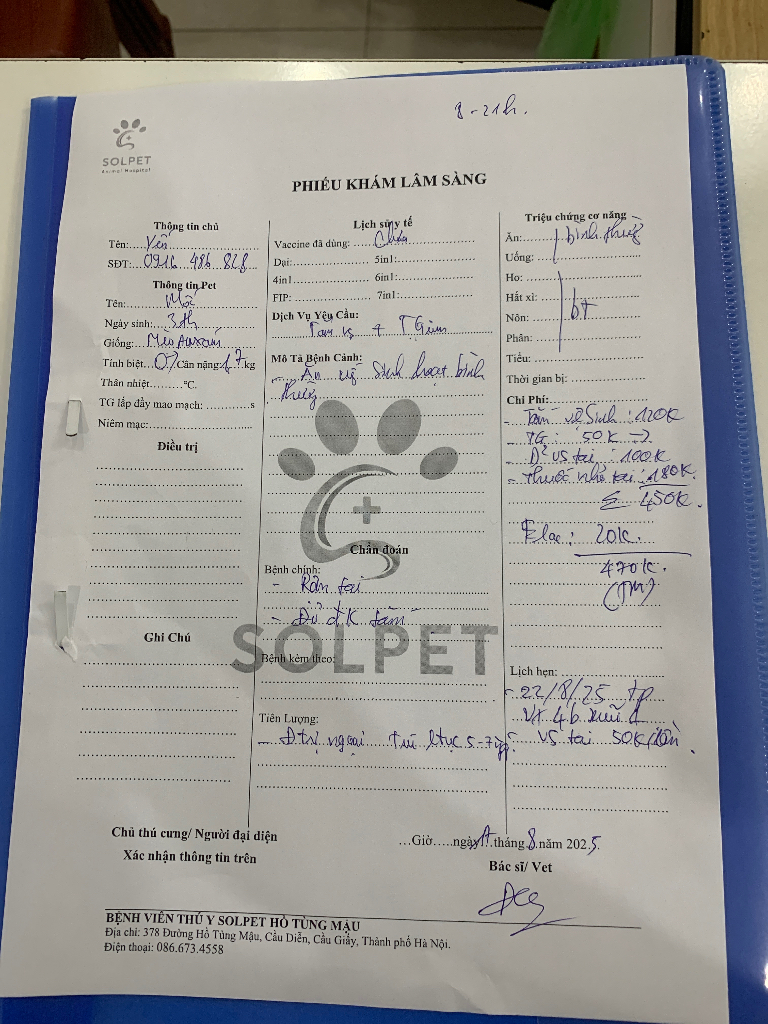 8 - 21h.
SOLPET
Animal Hospital
PHIẾU KHÁM LÂM SÀNG
Thông tin chủ
Tên: Yến
SĐT: 0916 486 828
Thông tin Pet
Tên:
Ngày sinh: 3th
Giống: Mèo
Tính biệt: Cân nặng: 1,7 kg
Thân nhiệt: °C.
TG lấp đầy mao mạch: s
Niêm mạc:
Điều trị
Ghi Chú
Lịch sử y tế
Vaccine đã dùng: Chưa
Dại: 5in1:
4in1 6in1:
FIP: 7in1:
Dịch Vụ Yêu Cầu:
Tắm vs + TGiun
Mô Tả Bệnh Cảnh:
- Ăn uống Sinh hoạt bình
thường
Chẩn đoán
Bệnh chính:
- Rận tai
- Đủ đk tắm
SOLPET
Bệnh kèm theo:
Tiên Lượng:
- Đ trị ngoại trú ltục 5-7
Triệu chứng cơ năng
Ăn: bình thường
Uống:
Ho:
Hắt xì: bt
Nôn:
Phân:
Tiểu:
Thời gian bị:
Chi Phí:
- Tắm vệ sinh : 120K
- TG : 50K
- D² vs tai : 100K
- Thuốc nhỏ tai : 180K.
Σ 450K.
Elac : 20K.
470K.
(TM)
Lịch hẹn:
- 22/8/25
vs tai 50K/lần.
Chủ thú cưng/ Người đại diện
Xác nhận thông tin trên
Giờ ngày tháng 8 năm 2025
Bác sĩ/ Vet
BỆNH VIÊN THÚ Y SOLPET HỒ TÙNG MẬU
Địa chỉ: 378 Đường Hồ Tùng Mậu, Cầu Diễn, Cầu Giấy, Thành phố Hà Nội.
Điện thoại: 086.673.4558